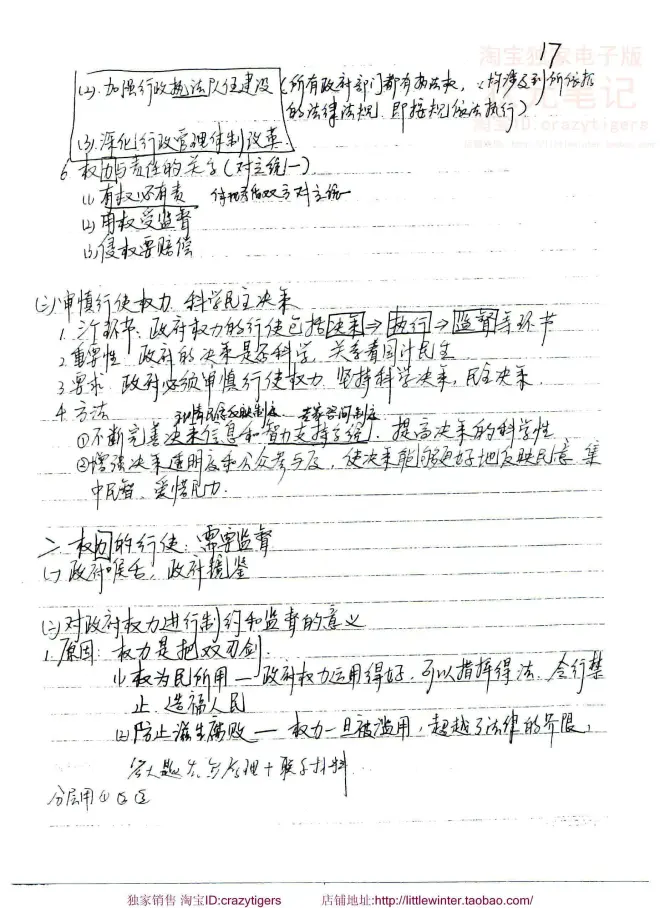 17
淘宝独家电子版
笔记
淘宝ID:crazytigers
(2).加强行政执法队伍建设(所有政府部门都有执法权,
的法律法规,即按规依法执行)
(3).深化行政管理体制改革.
6 权力与责任的关系(对立统一)
(1)有权必有责
(2)用权受监督
(3)侵权要赔偿
(二)审慎行使权力,科学民主决策
1.三个环节:政府权力的行使包括决策⇒执行→监督等环节
2.重要性:政府的决策是否科学,关系着国计民生
3.要求:政府必须审慎行使权力,坚持科学决策,民主决策.
4.方法
社情民意反映制度、专家咨询制度
①不断完善决策信息和智力支持系统,提高决策的科学性
②增强决策透明度和公众参与度,使决策能够更好地反映民意 集
中民智、爱惜民力.
二.权力的行使:需要监督
(一)政府喉舌,政府镜鉴
(二)对政府权力进行制约和监督的意义
1.原因:权力是把双刃剑.
(1)权为民所用——政府权力运用得好,可以指挥得法、令行禁
止,造福人民
(2)防止滋生腐败——权力一旦被滥用,超越了法律的界限,
分层用①②③
独家销售 淘宝ID:crazytigers 店铺地址:http://littlewinter.taobao.com/